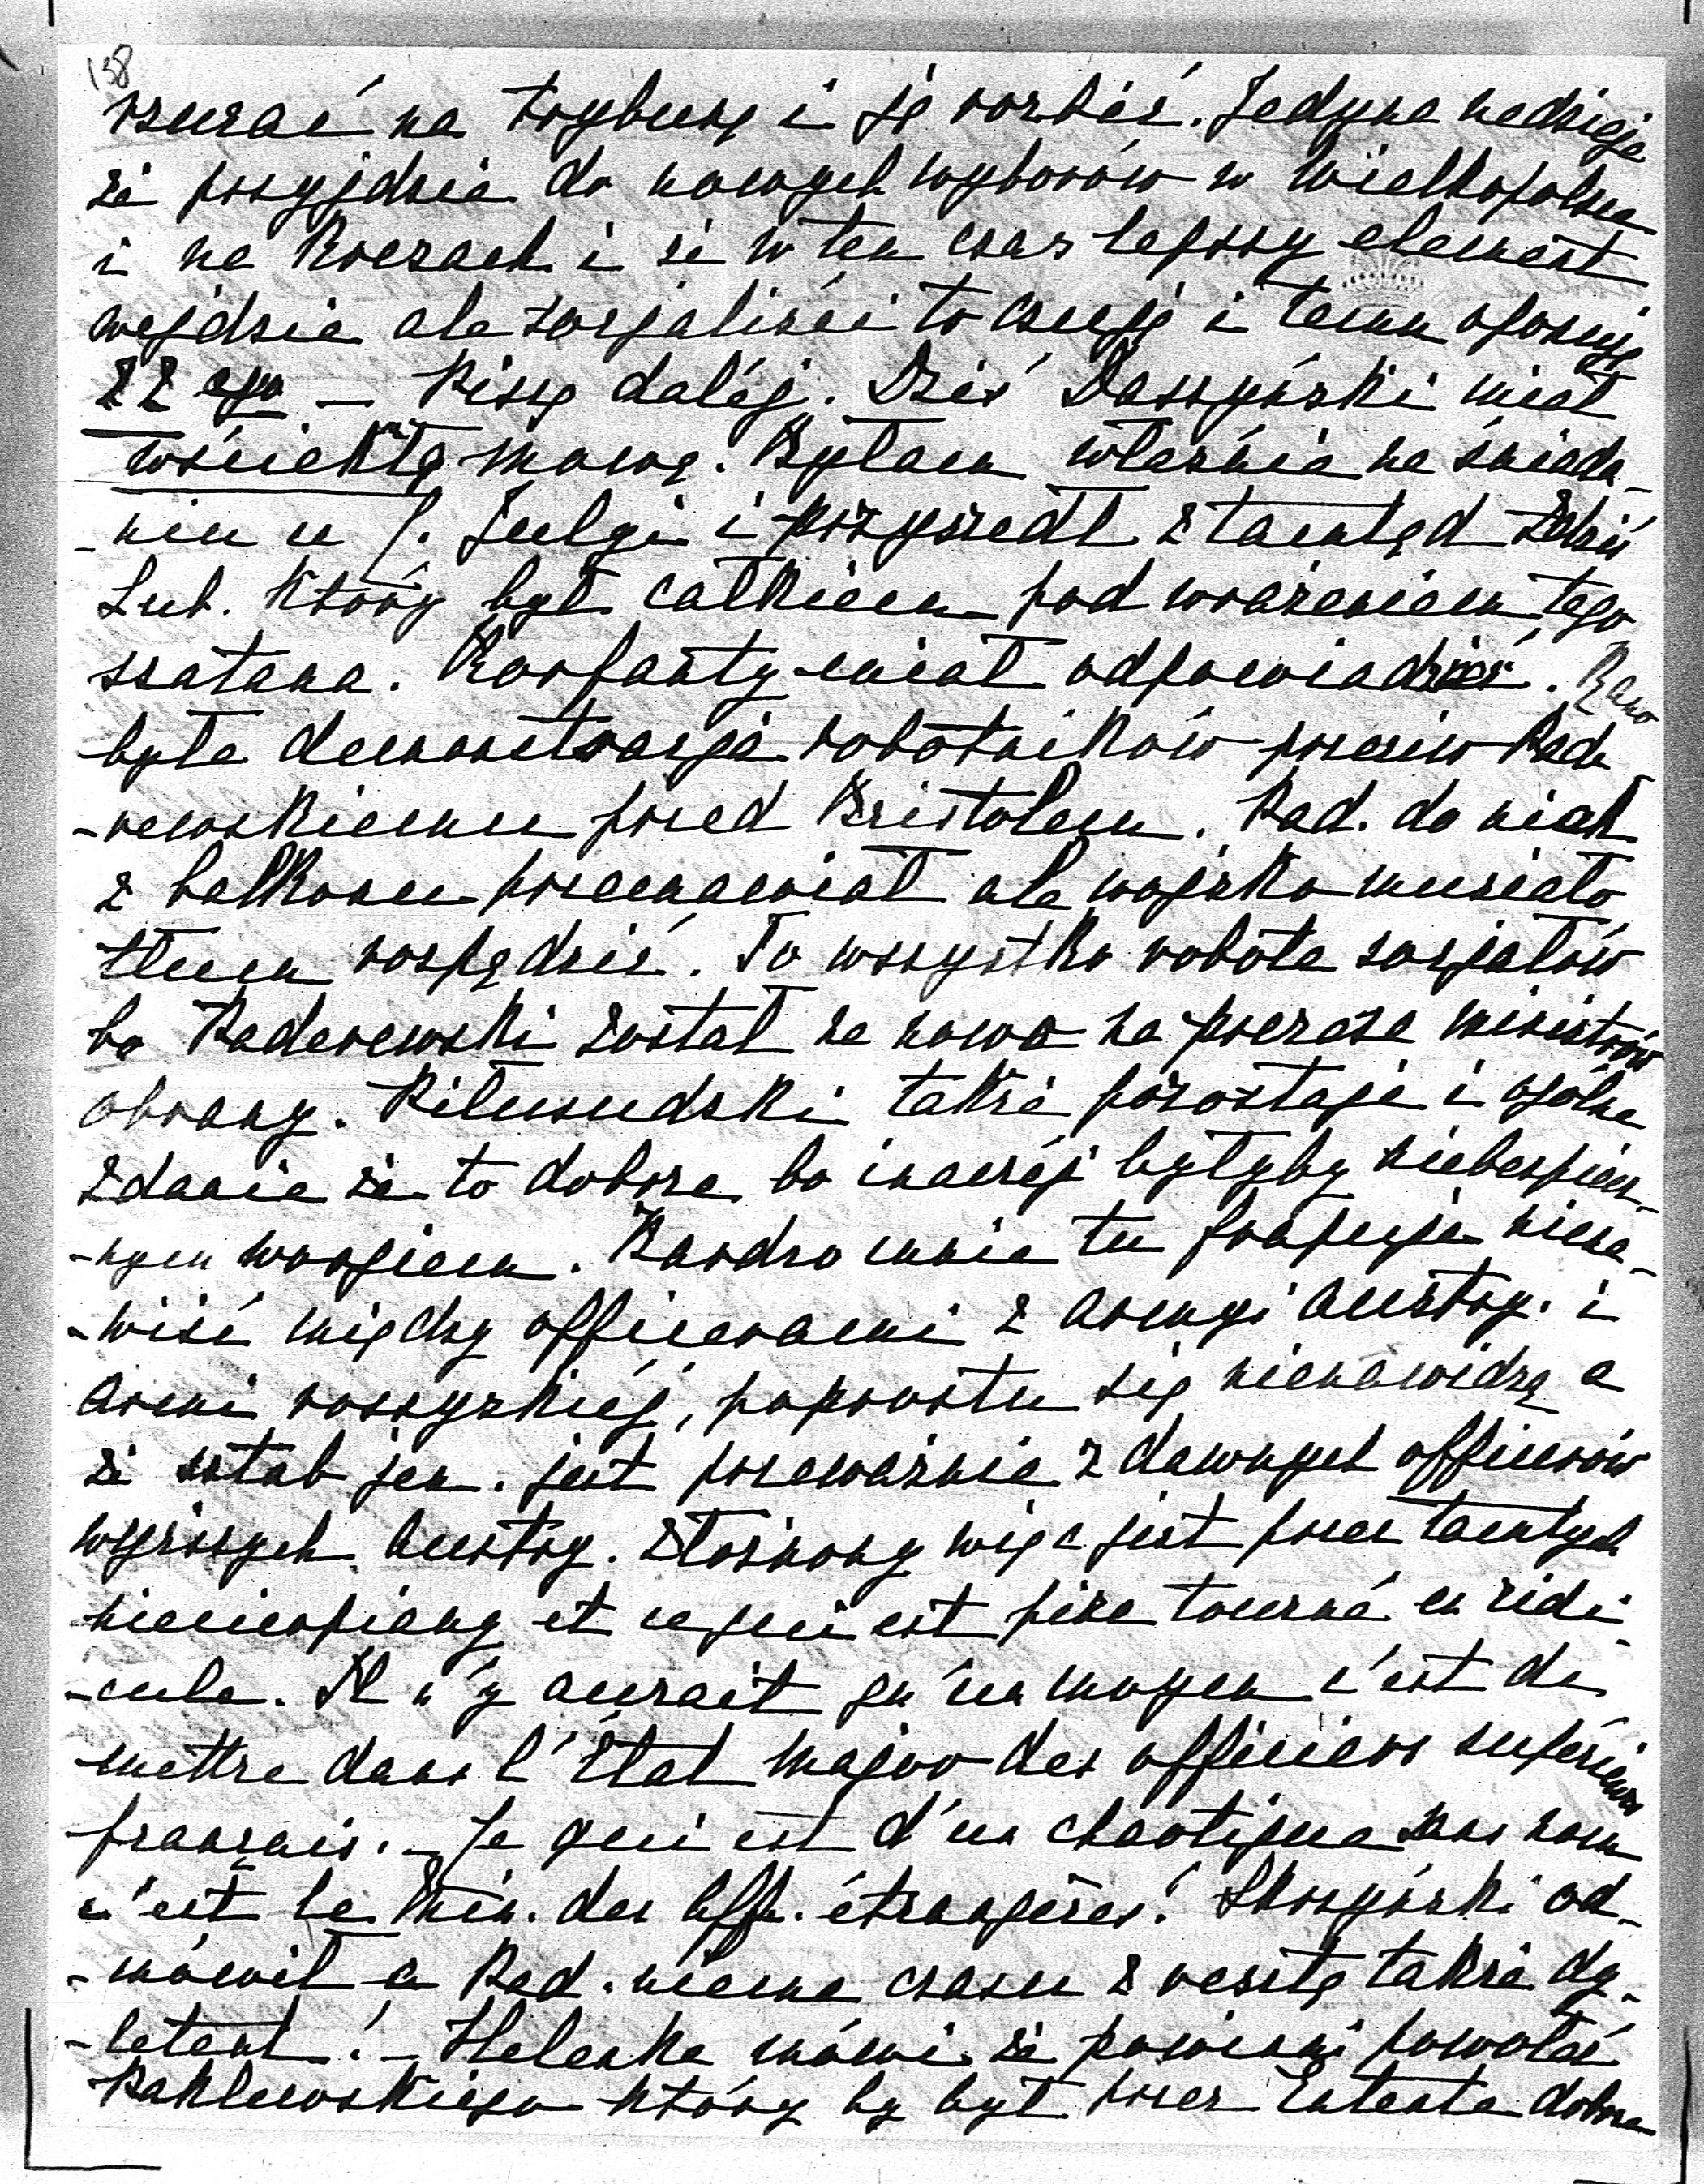 138
rzucać na trybunę i ję rozbić. Jedyna nadzieja
że przyjdzie do nowych wyborów w Wielkopolsce
i na Kresach i że w ten czas lepszy element
wejdzie ale sosjaliści to czuję i temu oponuję
22ego – Piszę daléj. Dziś Daszyński miał
wściekłą mowę. Byłam właśnie na śniada-
-niu u J. Julgi i przyszedł ztamtąd Zdziś
Lub. który był całkiem pod wrażeniem tego
szatana. Korfanty miał odpowiadzieć. Rano
była demonstrasja robotników przeciw Pade
-rewskiemu przed Bristolem. Pad. do nich
z balkonu przemawiał ale wojsko musiało
tłum rozpędzić. To wszystko robota sosjałów
bo Paderewski został na nowo na prezesa ministrów
obrany. Piłusudski także pozostaje i ogólne
zdanie że to dobrze bo inaczéj byłyby niebezpiecz-
-nym wrogiem. Bardzo mnie tu frapuje niena-
-wiść między officerami z armyi austry. i
armi rossyzkiéj, poprostu się nienawidzą a
że sztab jen. jest przeważnie z dawnych officerów
wyższych austry. złożony więc jest przez tamtych
niecierpiany et ce qui est pire tourné en ridi-
-cule. Il n'y aurait qu'un moyen c'est de
mettre dans l'État Major des officiers supérieurs
français. – Je qui est d'un chaotique sans nom
c'est le Min. des Aff. étrangères! Skrzyński od-
-mówił a Pad. niema czasu z resztą także dy-
-letant! – Helenka mówi że powinni powołać
Paklewskiego który by był przez Entente dobrze